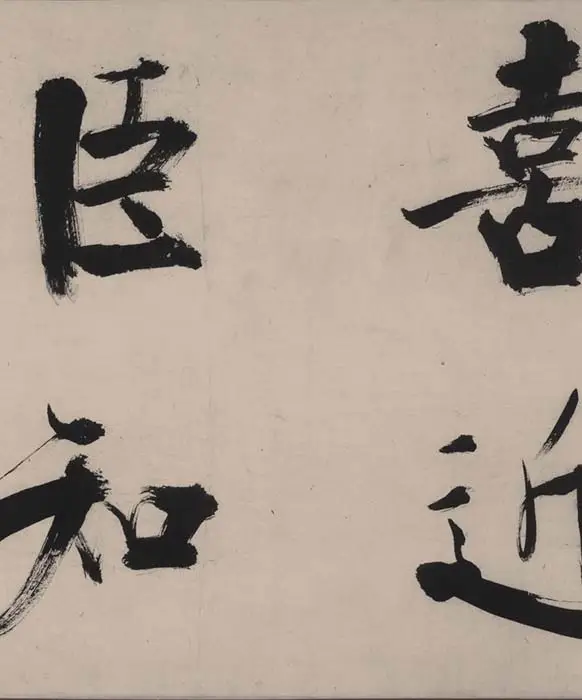 喜近
臣知